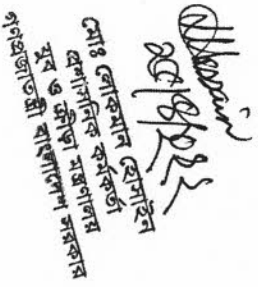 মোঃ লোকমান হোসাইন
প্রশাসনিক কর্মকর্তা
যুব ও ক্রীড়া মন্ত্রণালয়
গণপ্রজাতন্ত্রী বাংলাদেশ সরকার